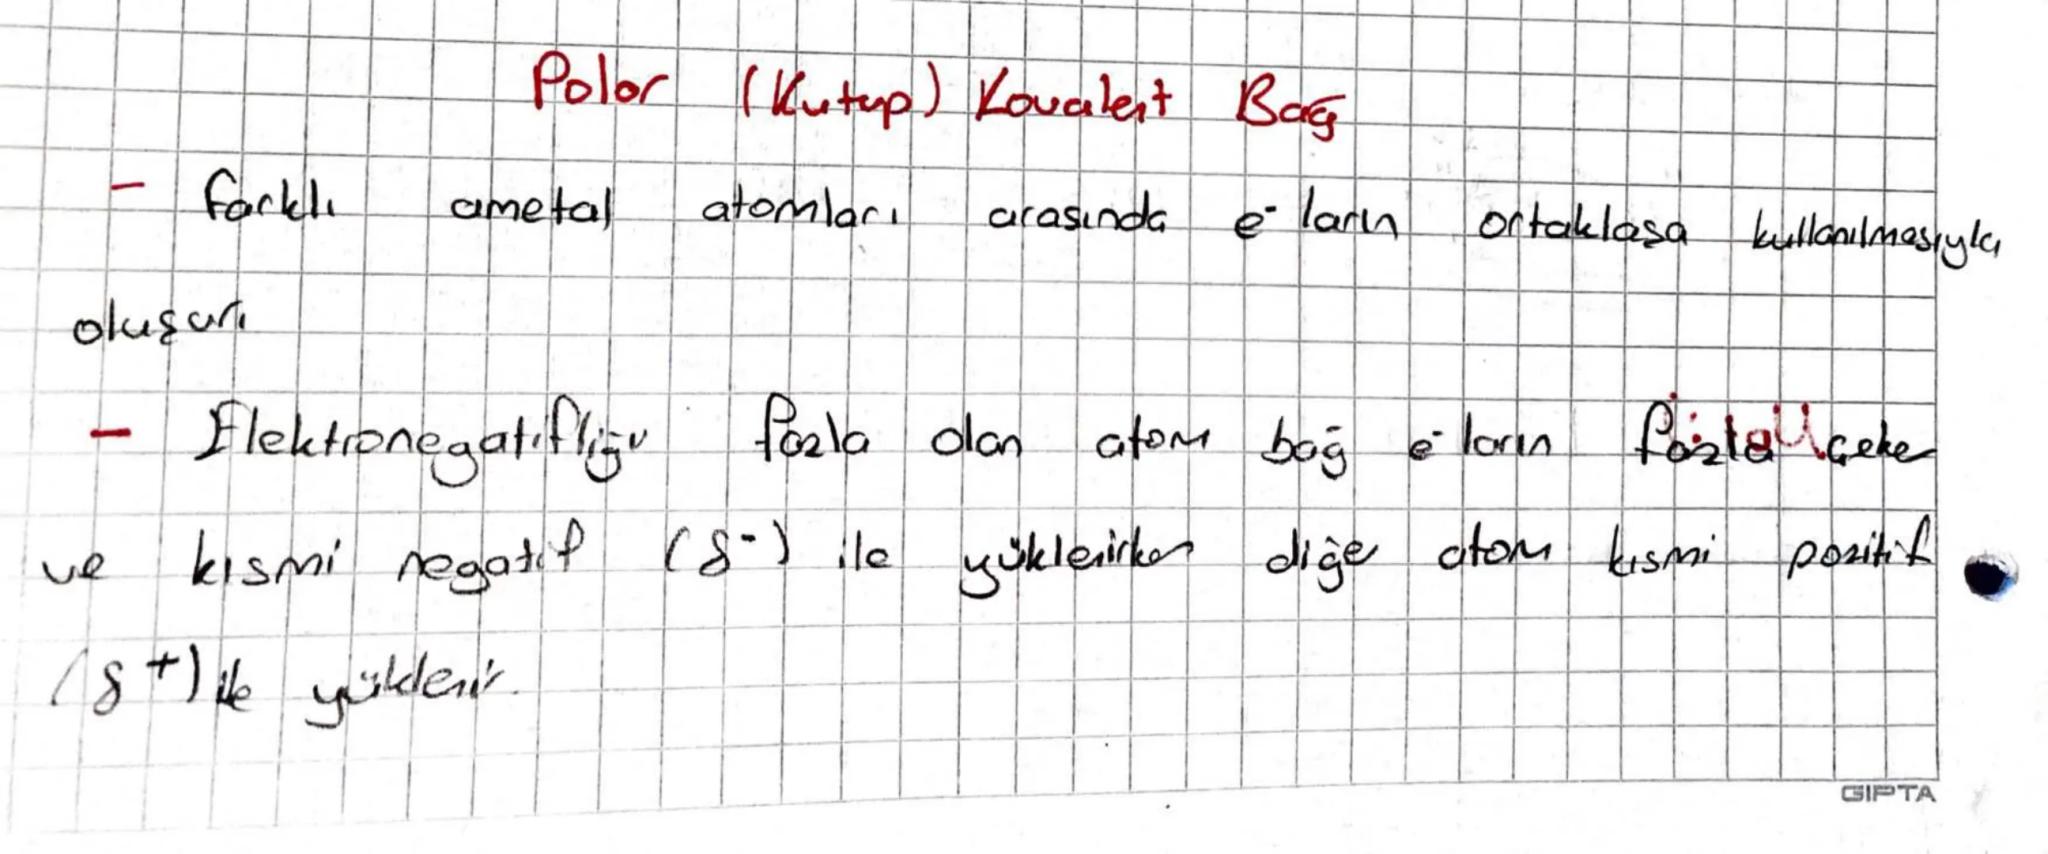 Polar (Kutup) Kovalent Bağ
- farklı ametal atomları arasında e⁻ ların ortaklaşa kullanılmasıyla
oluşur.
- Elektronegatifliği fazla olan atom bağ e⁻ ların çeker
ve kısmi negatif (δ-) ile yüklenirken diğe atom kısmi pozitif
(δ+) ile yüklenir.
GIPTA